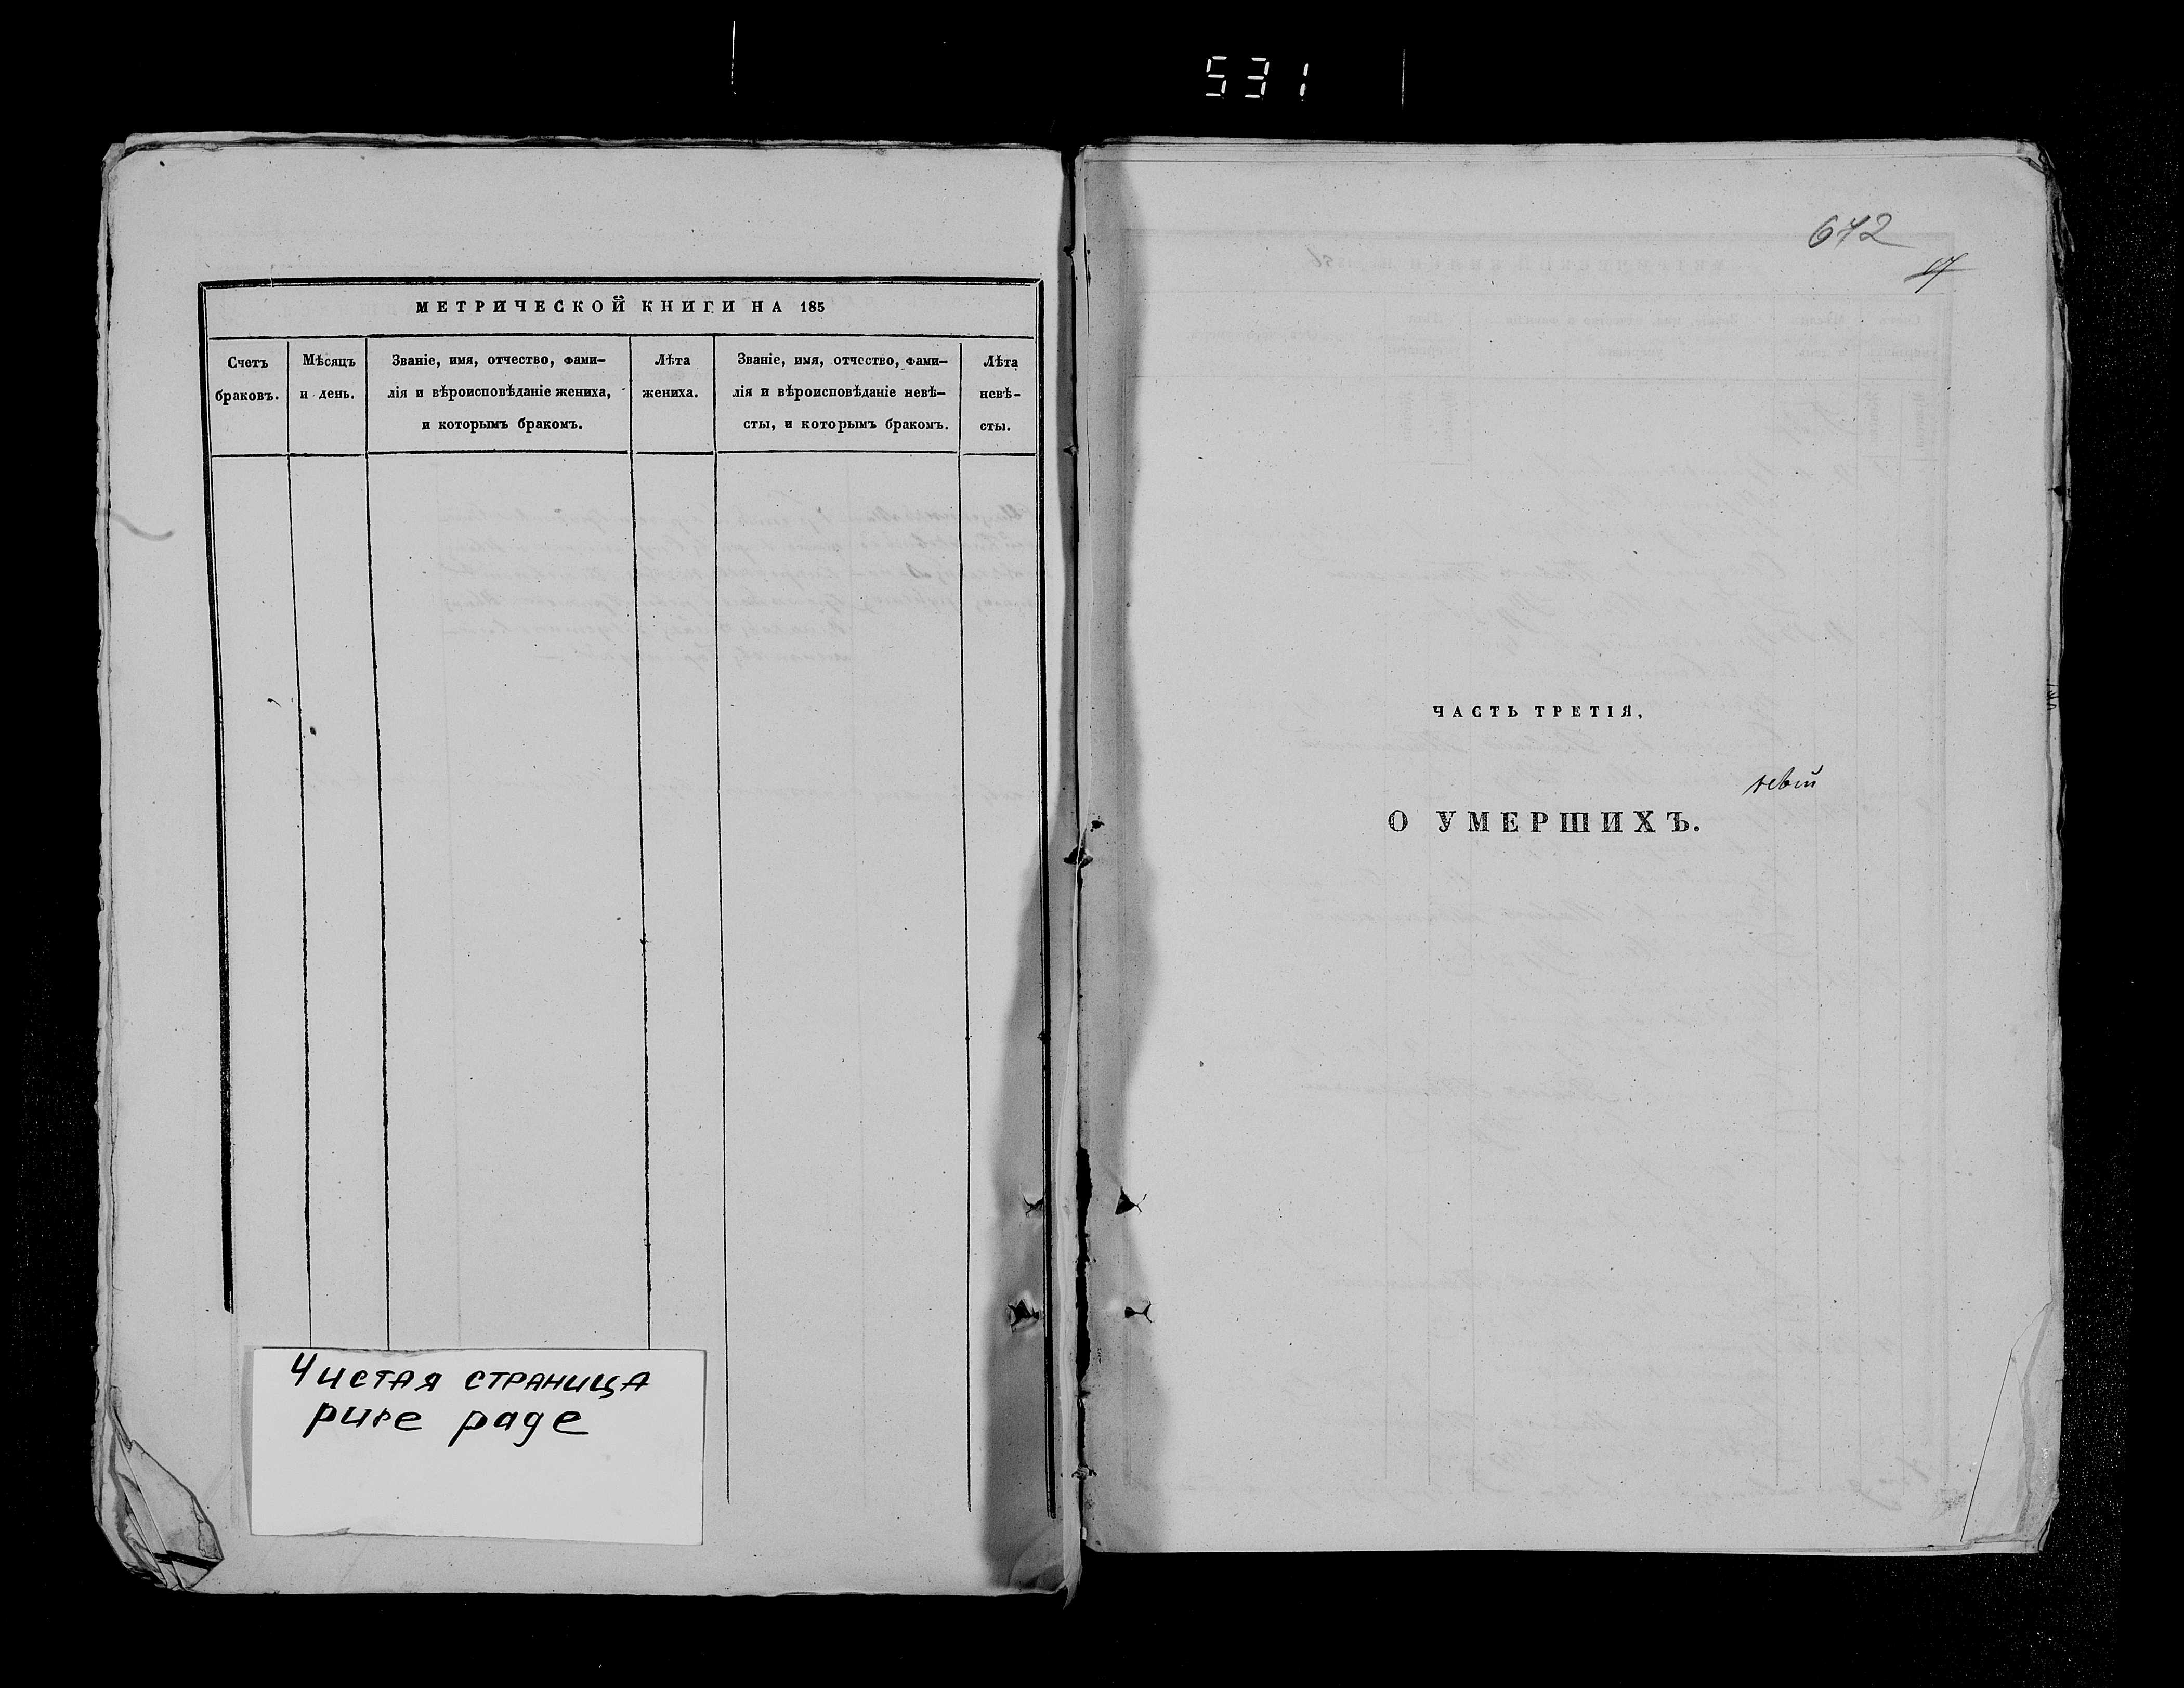 531
МЕТРИЧЕСКОЙ КНИГИ НА 185
Счетъ браковъ.
Мѣсяцъ и день.
Званіе, имя, отчество, фами-
лія и вѣроисповѣданіе жениха,
и которымъ бракомъ.
Лѣта жениха.
Званіе, имя, отчество, фами-
лія и вѣроисповѣданіе невѣ-
сты, и которымъ бракомъ.
Лѣта невѣ-
сты.
Чистая страница
pure page
672
17
ЧАСТЬ ТРЕТІЯ,
О УМЕРШИХЪ.